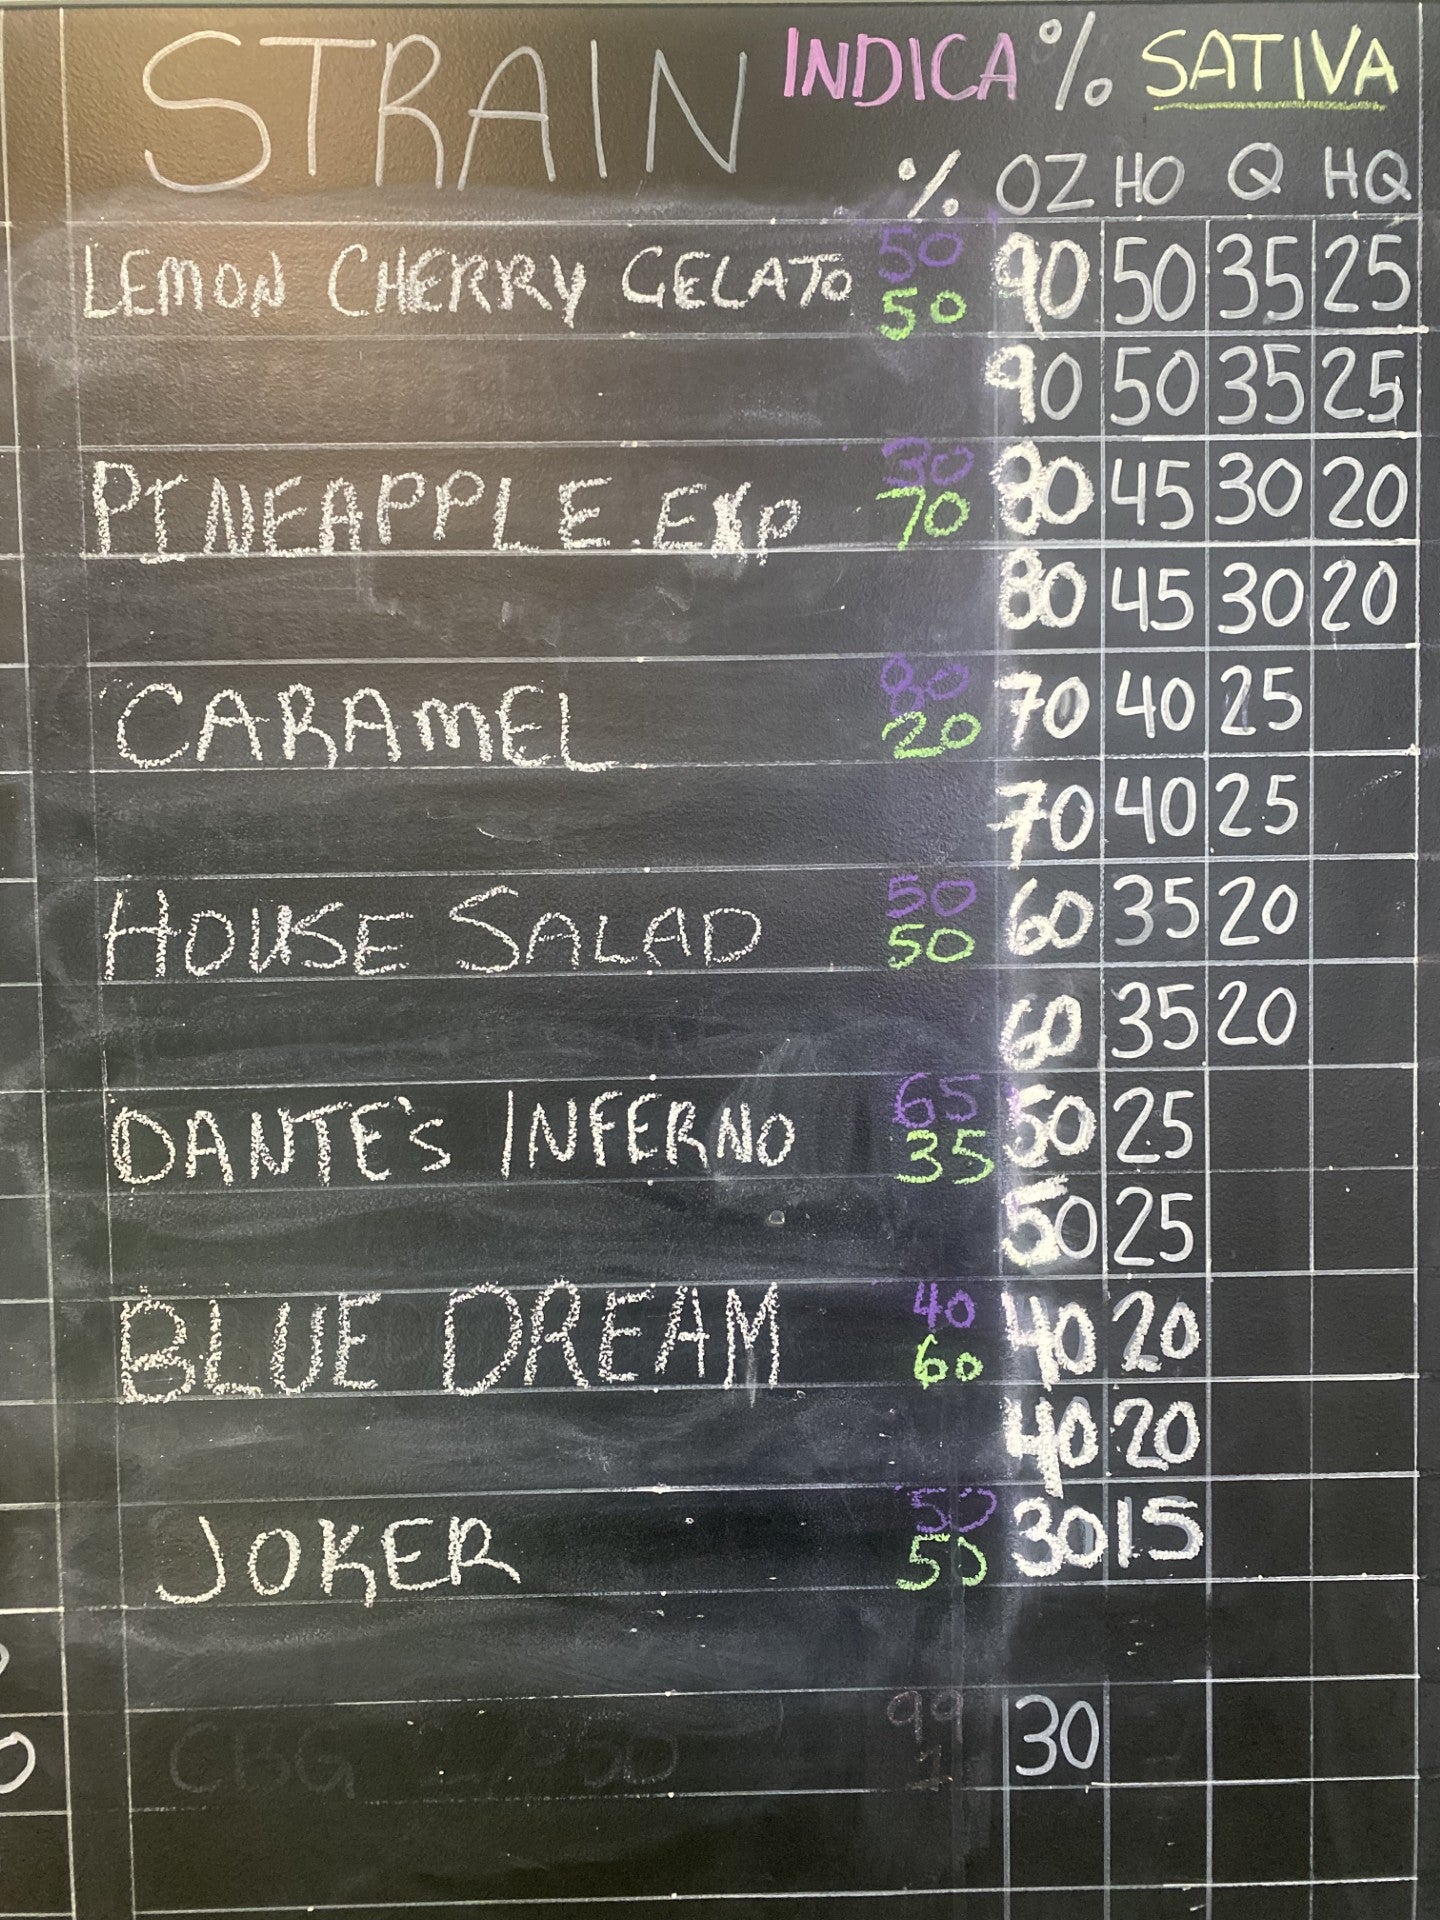 STRAIN INDICA % SATIVA
% OZ HO Q HQ
LEMON CHERRY GELATO 50 90 50 35 25
50
90 50 35 25
PINEAPPLE EXP 30 80 45 30 20
70
80 45 30 20
CARAMEL 80 70 40 25
20
70 40 25
HOUSE SALAD 50 60 35 20
50
60 35 20
DANTE'S INFERNO 65 50 25
35
50 25
BLUE DREAM 40 40 20
60
40 20
JOKER 50 30 15
50
CBG 99 30